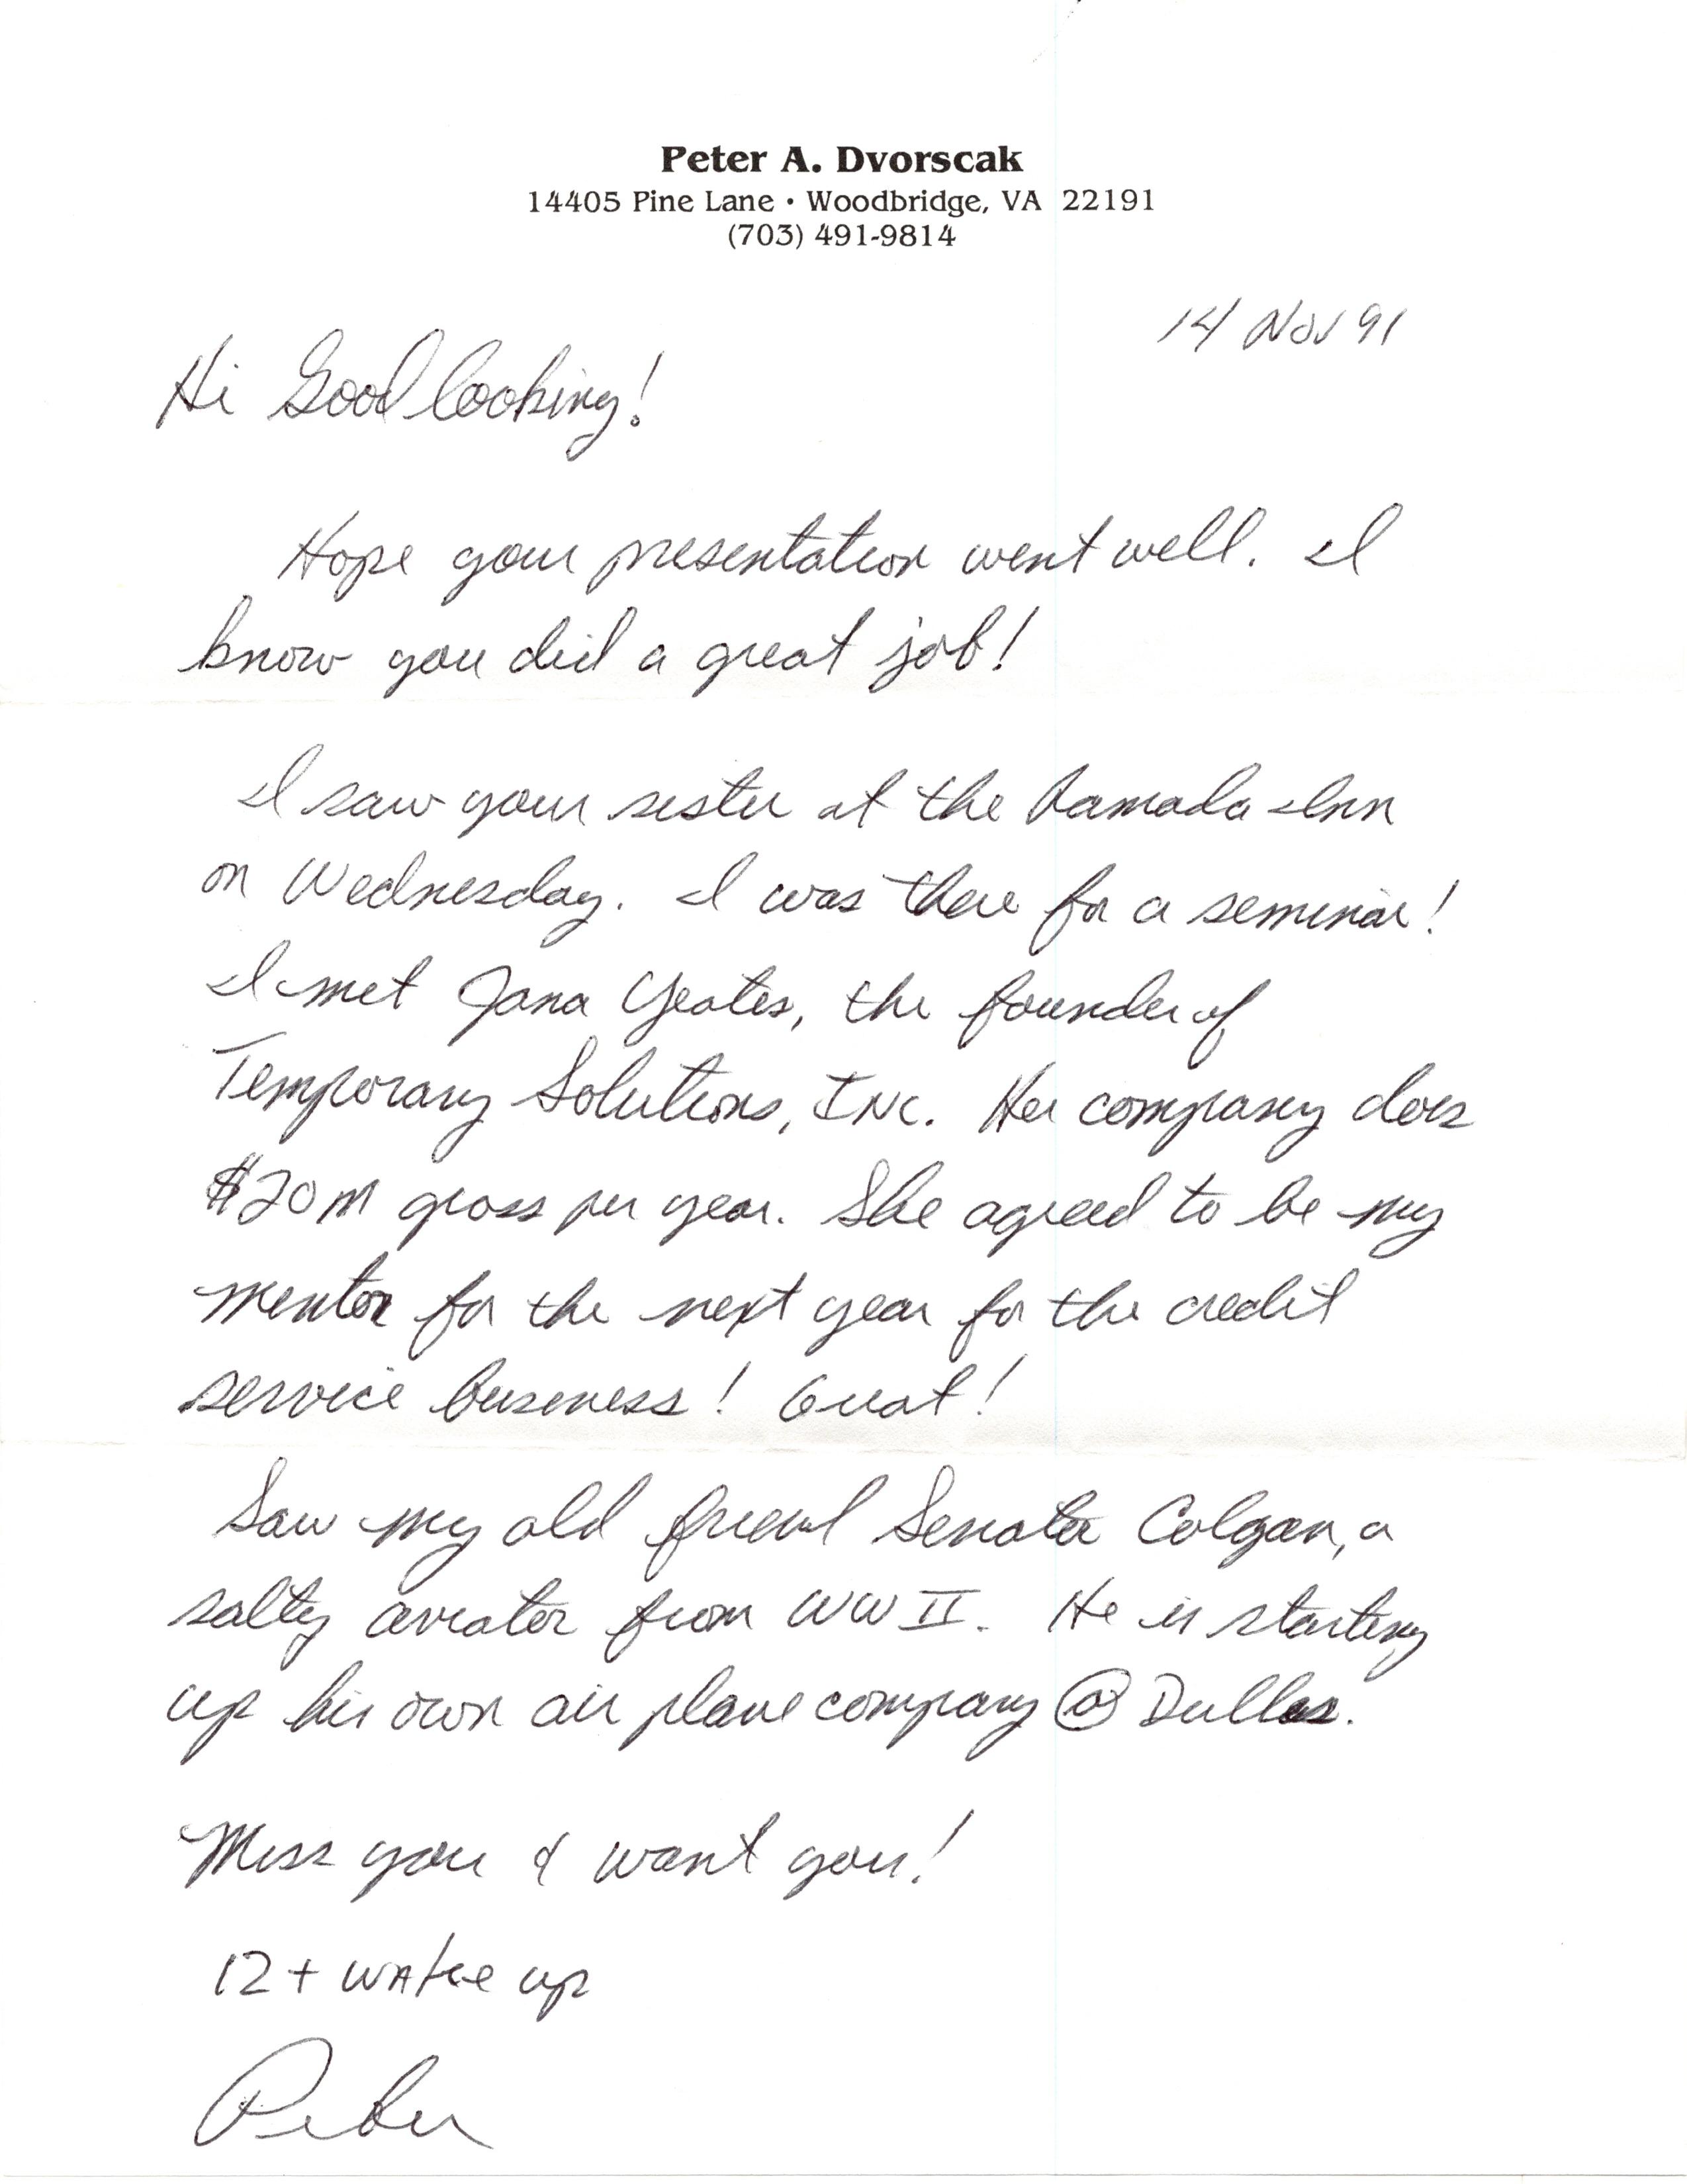 Peter A. Dvorscak
14405 Pine Lane • Woodbridge, VA 22191
(703) 491-9814
14 Nov 91
Hi Good looking!
Hope your presentation went well. I
know you did a great job!
I saw your sister at the Ramada Inn
on Wednesday. I was there for a seminar!
I met Jana Yeates, the founder of
Temporary Solutions, INC. Her company does
$20M gross per year. She agreed to be my
mentor for the next year for the credit
service business! Great!
Saw my old friend Senator Colgan, a
salty aviator from WW II. He is starting
up his own air plane company @ Dulles.
Miss you & want you!
12 + wake up
Peter